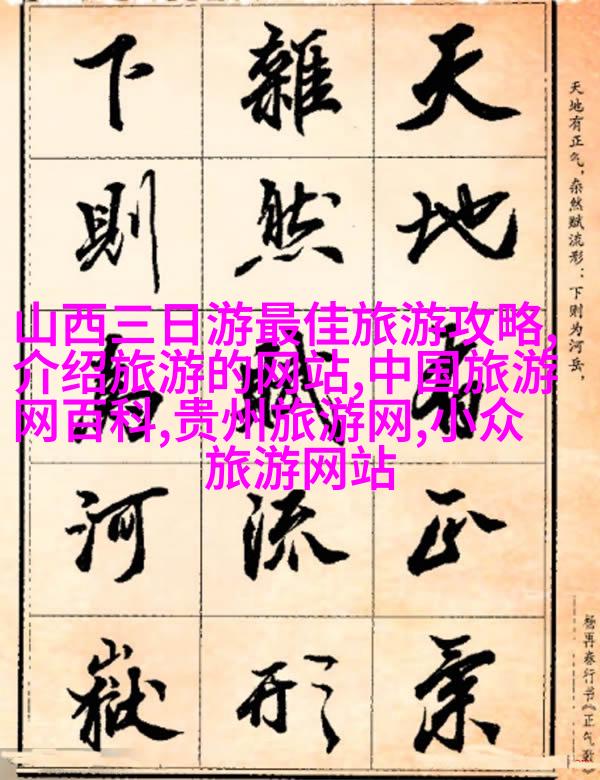 天地有正氣
雜然賦流形
下則為河嶽
天地有正气，杂然赋流形：下则为河岳，
杨再春行书《正气歌》
山西三日游最佳旅游攻略,
介绍旅游的网站,中国旅游
网百科,贵州旅游网,小众
旅游网站